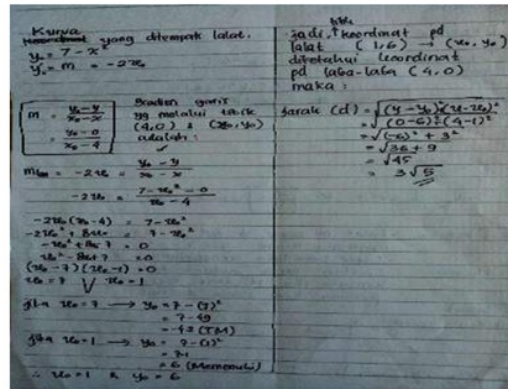 Kurva
yang ditempati lalat.
y₀ = 7 - x²
y₀' = m = -2x₀
m = y₀-y / x₀-x
= y₀-0 / x₀-4
Gradien garis
yg melalui titik
(4,0) & (x₀,y₀)
adalah :
m = -2x₀ = y₀ - y / x₀ - x
-2x₀ = 7 - x₀² - 0 / x₀ - 4
-2x₀(x₀-4) = 7-x₀²
-2x₀² + 8x₀ = 7-x₀²
-x₀² + 8x-7 = 0
x₀² - 8x+7 = 0
(x₀-7)(x₀-1) = 0
x₀ = 7 V x₀ = 1
jika x₀ = 7 → y₀ = 7 - (7)²
= 7-49
= -42 (TM)
jika x₀ = 1 → y₀ = 7 - (1)²
= 7-1
= 6 (Memenuhi)
∴ x₀ = 1 & y₀ = 6
jadi, titik koordinat pd
lalat (1,6) → (x₀, y₀)
diketahui koordinat
pd laba-laba (4,0)
maka :
jarak (d) = √(y-y₀)²+(x-x₀)²
= √(0-6)²+(4-1)²
= √(-6)² + 3²
= √36 + 9
= √45
= 3√5